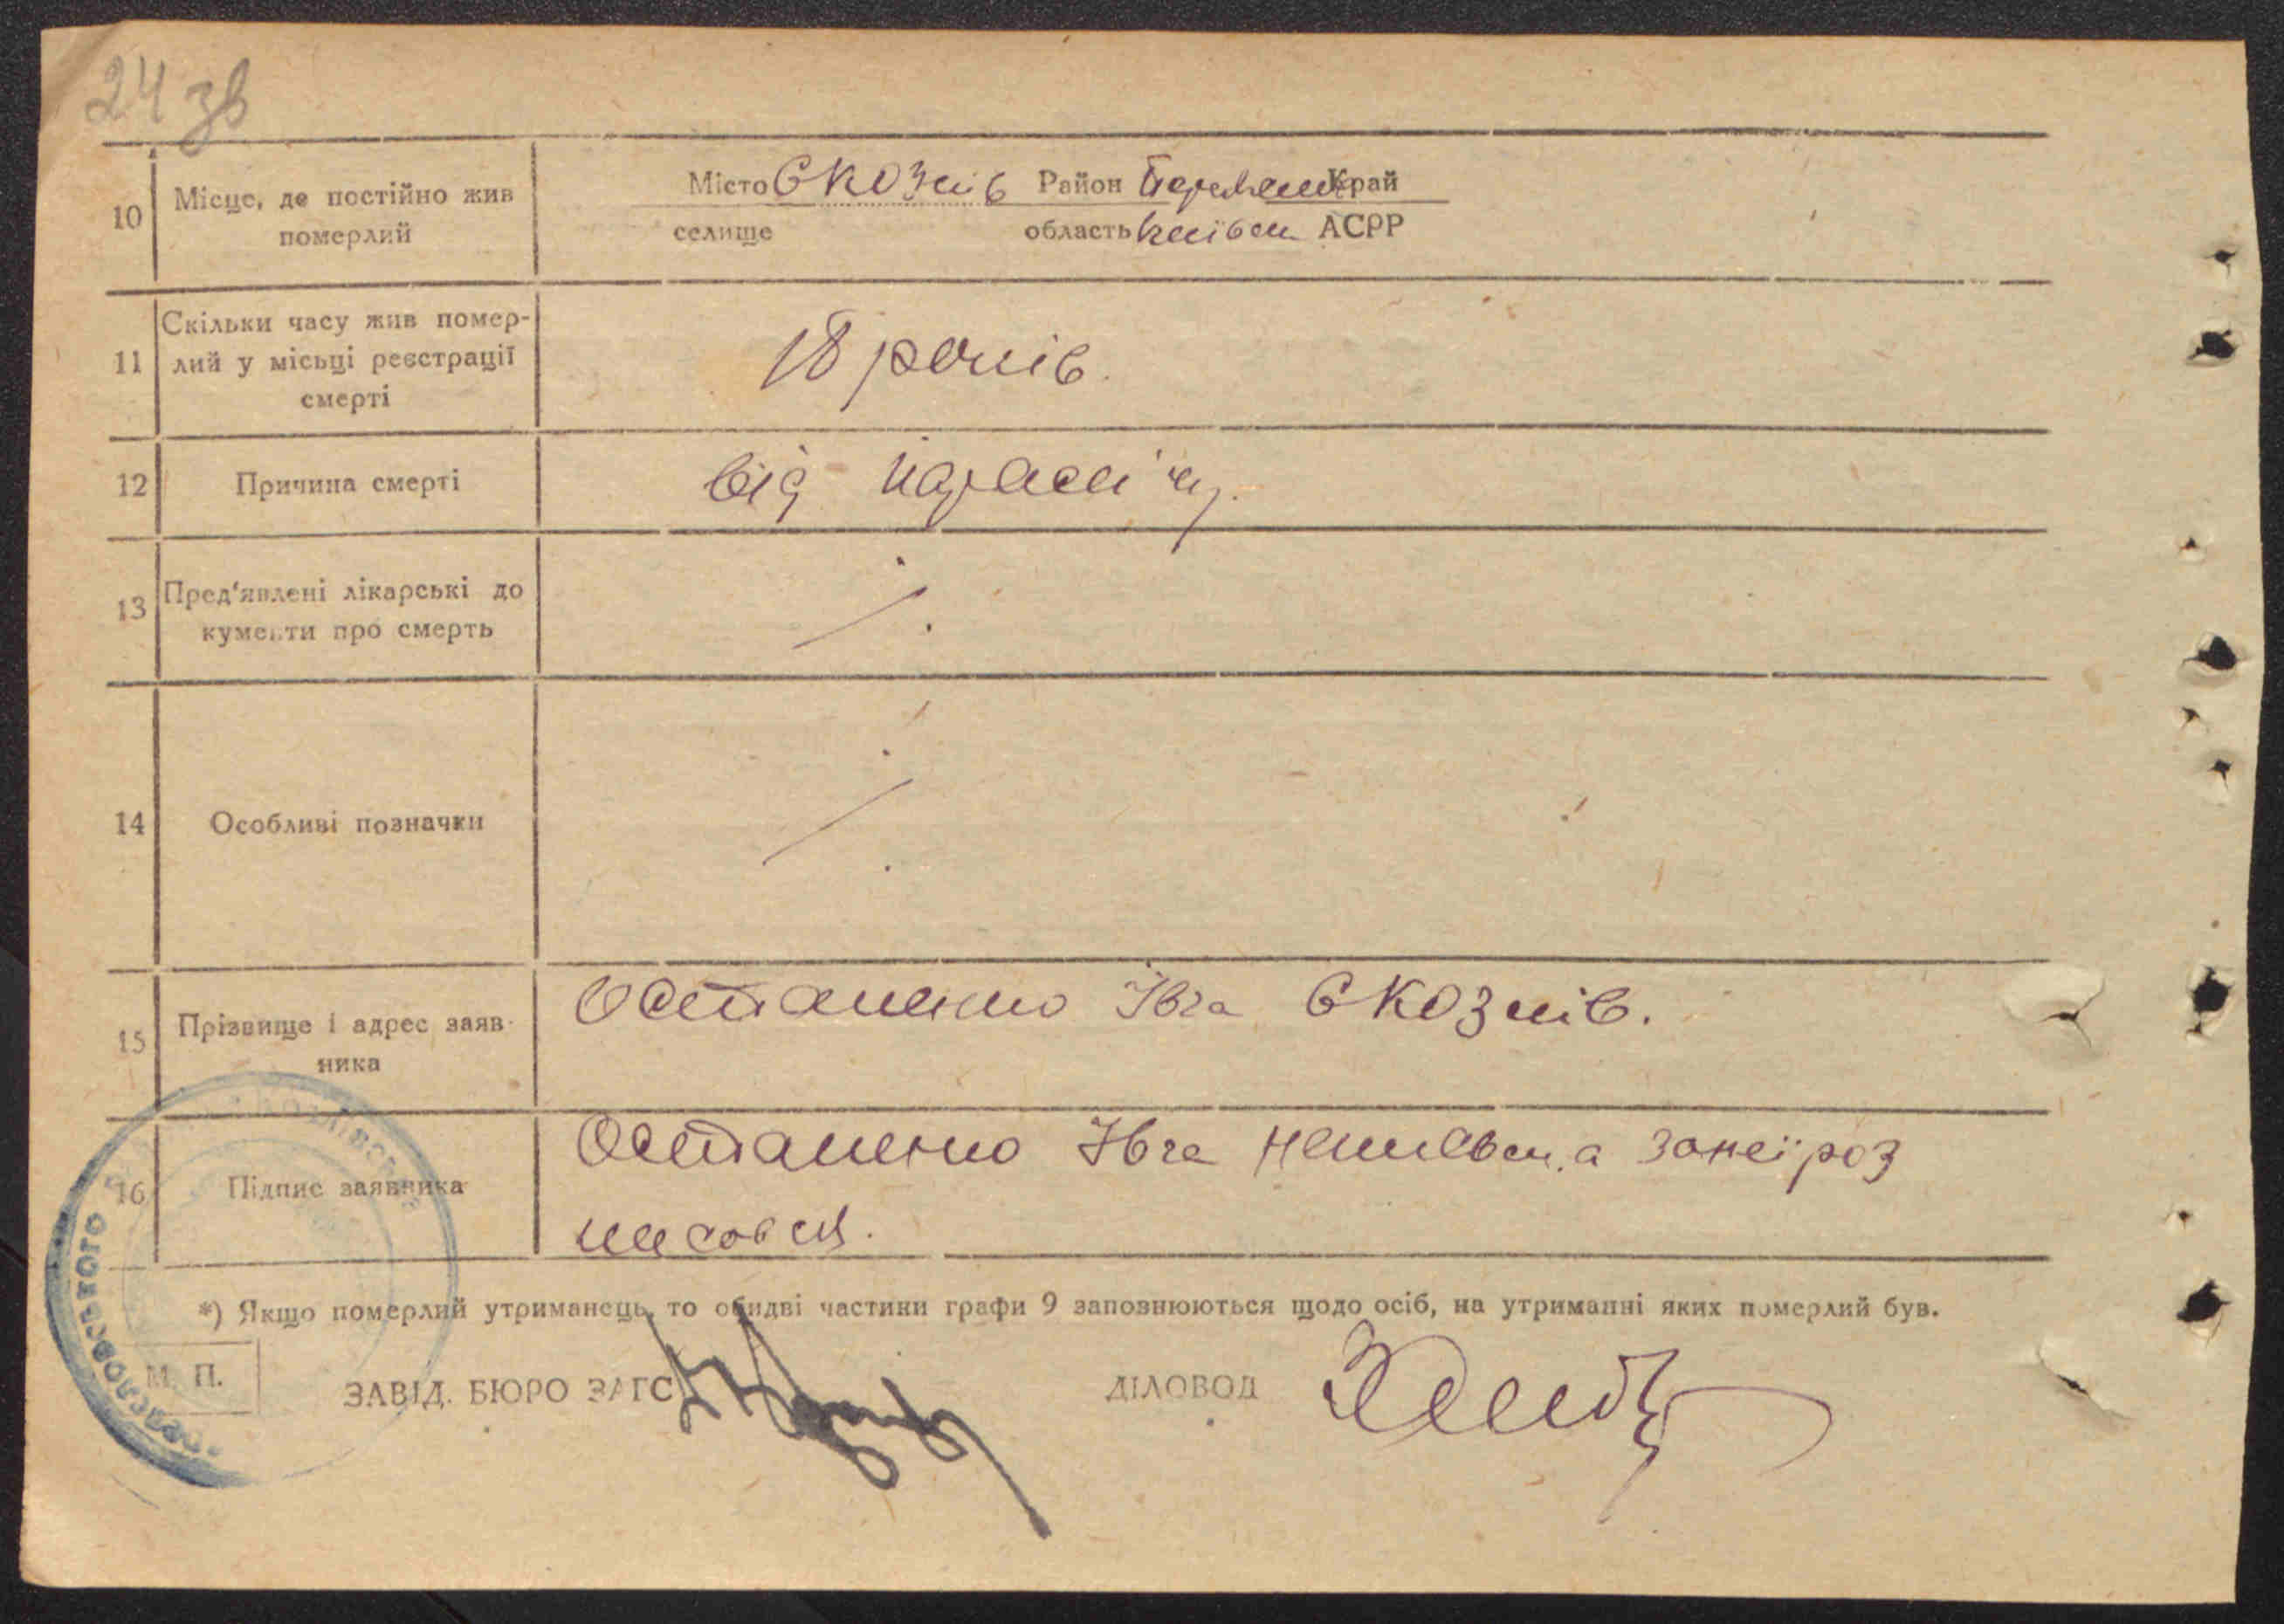 24 зв
10 Місце, де постійно жив померлий
Місто с Козлів Район Переяслк Край
селище область Київськ АСРР
11 Скільки часу жив помер-
лий у місьці реєстрації
смерті
18 років.
12 Причина смерті
від паралічу.
13 Пред'явлені лікарські до
кументи про смерть
14 Особливі позначки
15 Прізвище і адрес заяв-
ника
Остапенко Івга с Козлів.
16 Підпис заявника
Остапенко Івга неписьм. а за неї роз
писався.
*) Якщо померлий утриманець, то обидві частини графи 9 заповнюються щодо осіб, на утриманні яких померлий був.
М. П.
ЗАВІД. БЮРО ЗАГС ДІЛОВОД